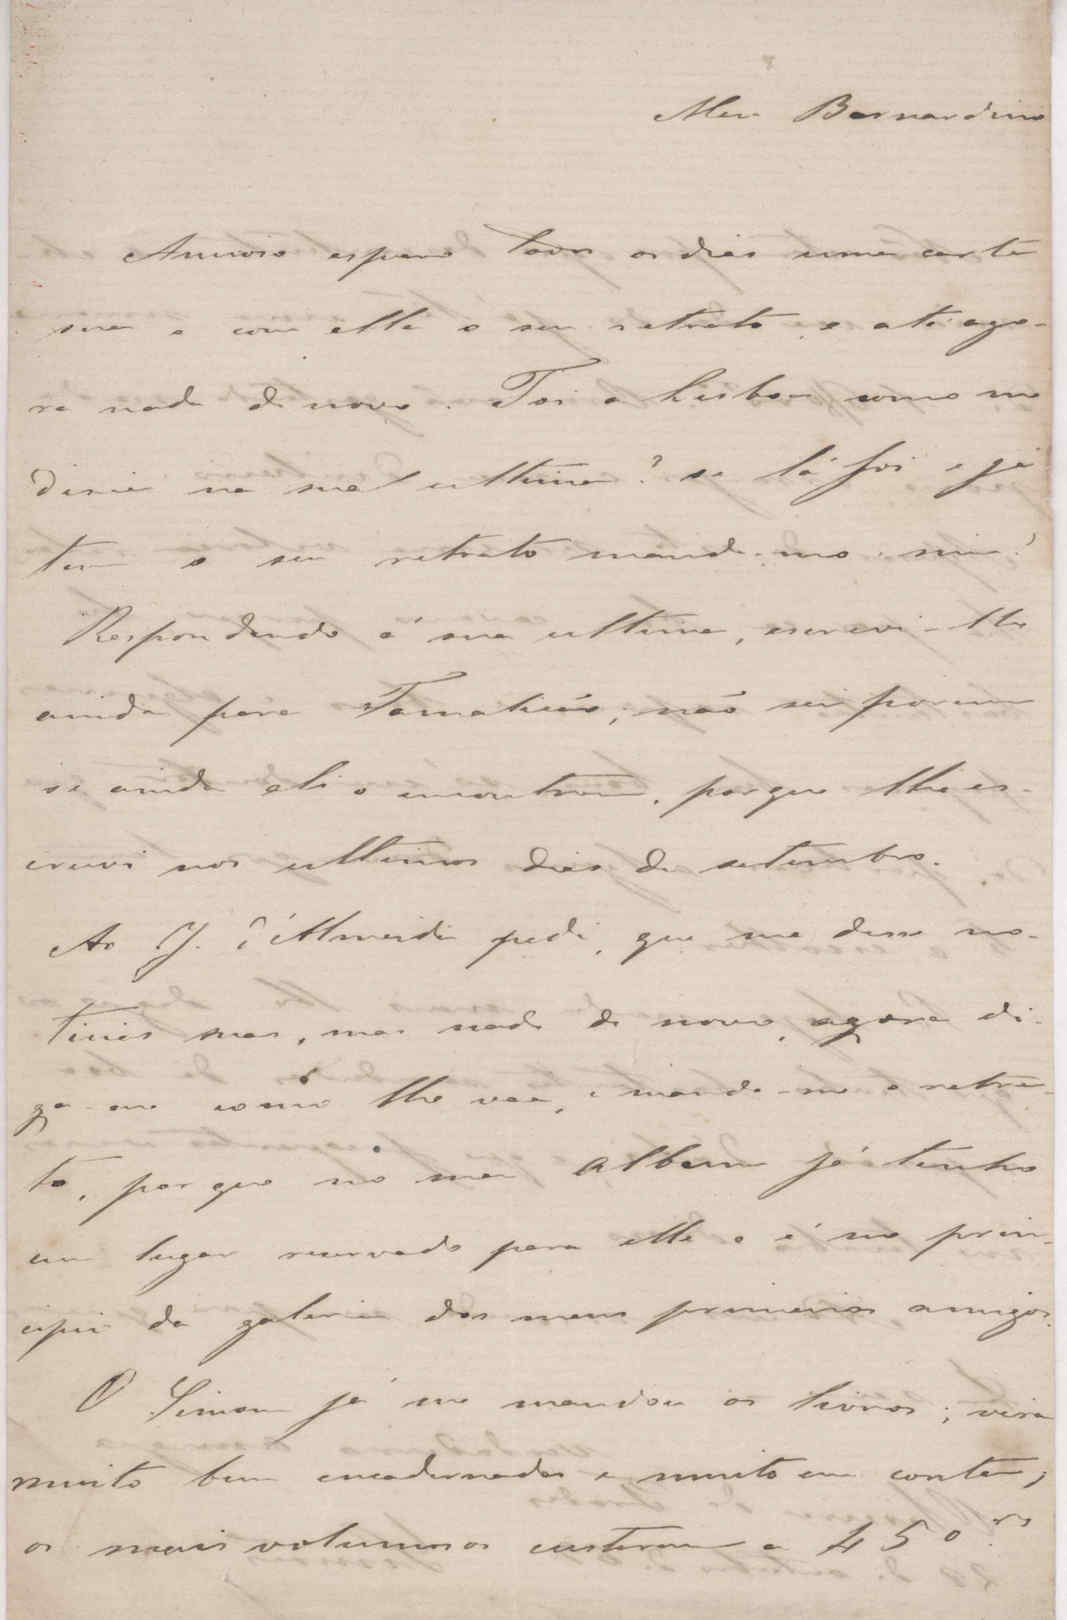 Meu Bernardino
Ancioso espero todos os dias uma carta
sua e com ella o seu retrato, e até ago-
ra nada de novo. Foi a Lisboa como me
dizia na sua ultima? se lá foi e já
tem o seu retrato mande-mo sim?
Respondendo á sua ultima, escrevi-lhe
ainda para não sei porem
se ainda ali o encontrou, porque lhe es-
crevi nos ultimos dias de setembro.
Ao J. d'Almeida pedi, que me desse no-
ticias suas, mas nada de novo, agora di-
ga-me como lhe vae, e mande-me o retra-
to, porque no meu album já tenho
um lugar reservado para elle e é no prin-
cipio da galeria dos meus primeiros amigos.
O Simon já me mandou os livros; vem
muito bem encadernados e muito em conta;
os mais volumosos custaram a 450 rs